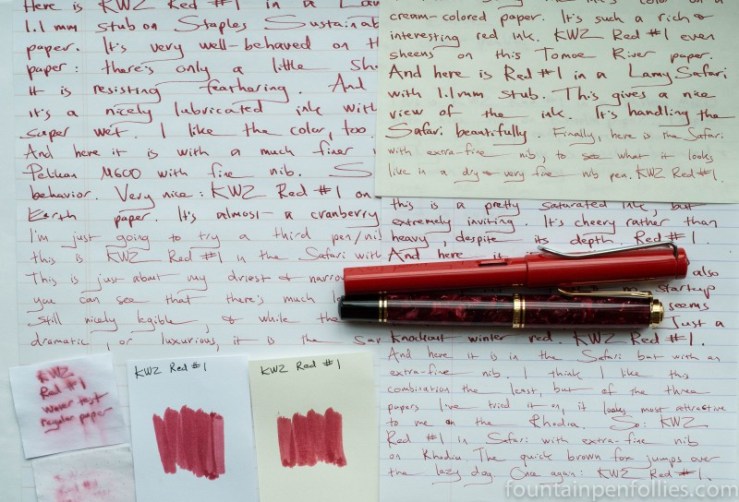 Here is KWZ Red #1 in a La
1.1 mm stub on Staples Sustainab
paper. It's very well-behaved on th
paper: there's only a little sh
it is resisting feathering. And
it's a nicely lubricated ink with
super wet. I like the color, too.
And here it is with a much finer
Pelikan M600 with fine nib. S
behavior. Very nice: KWZ Red #1 on
Earth paper. It's almost a cranberry
I'm just going to try a third pen/ni
this is KWZ Red #1 in the Safari with
This is just about my driest & narro
you can see that there's much l
still nicely legible, & while the
dramatic, or luxurious, it is the sa
cream-colored paper. It's such a rich &
interesting red ink. KWZ Red #1 even
sheens on this Tomoe River paper.
And here is Red #1 in a Lamy Safari
with 1.1mm stub. This gives a nice
view of the ink. It's handling the
Safari beautifully. Finally, here is the Safari
with extra-fine nib, to see what it looks
like in a dry & very fine nib pen. KWZ Red #1.
this is a pretty saturated ink, but
extremely inviting. It's cheery rather than
heavy, despite its depth. Red #1.
And here it
also
startup
seems
Just a
knockout winter red. KWZ Red #1.
And here it is in the Safari but with an
extra-fine nib. I think I like this
combination the least, but of the three
papers I've tried it on, it looks most attractive
to me on the Rhodia. So: KWZ
Red #1 in Safari with extra-fine nib
on Rhodia. The quick brown fox jumps over
the lazy dog. Once again: KWZ Red #1.
KWZ
Red #1
water test
regular paper
KWZ Red #1
KWZ Red #1
fountainpenfollies.com